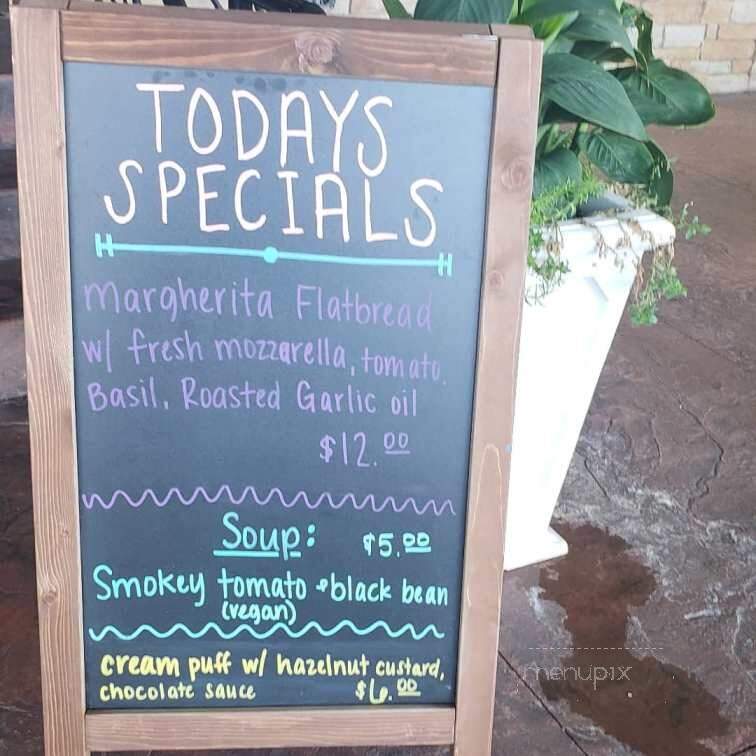 TODAYS
SPECIALS
Margherita Flatbread
w/ fresh mozzarella, tomato,
Basil, Roasted Garlic oil
$12.00
Soup: $5.00
Smokey tomato & black bean
(vegan)
cream puff w/ hazelnut custard,
chocolate sauce $6.00
menupix